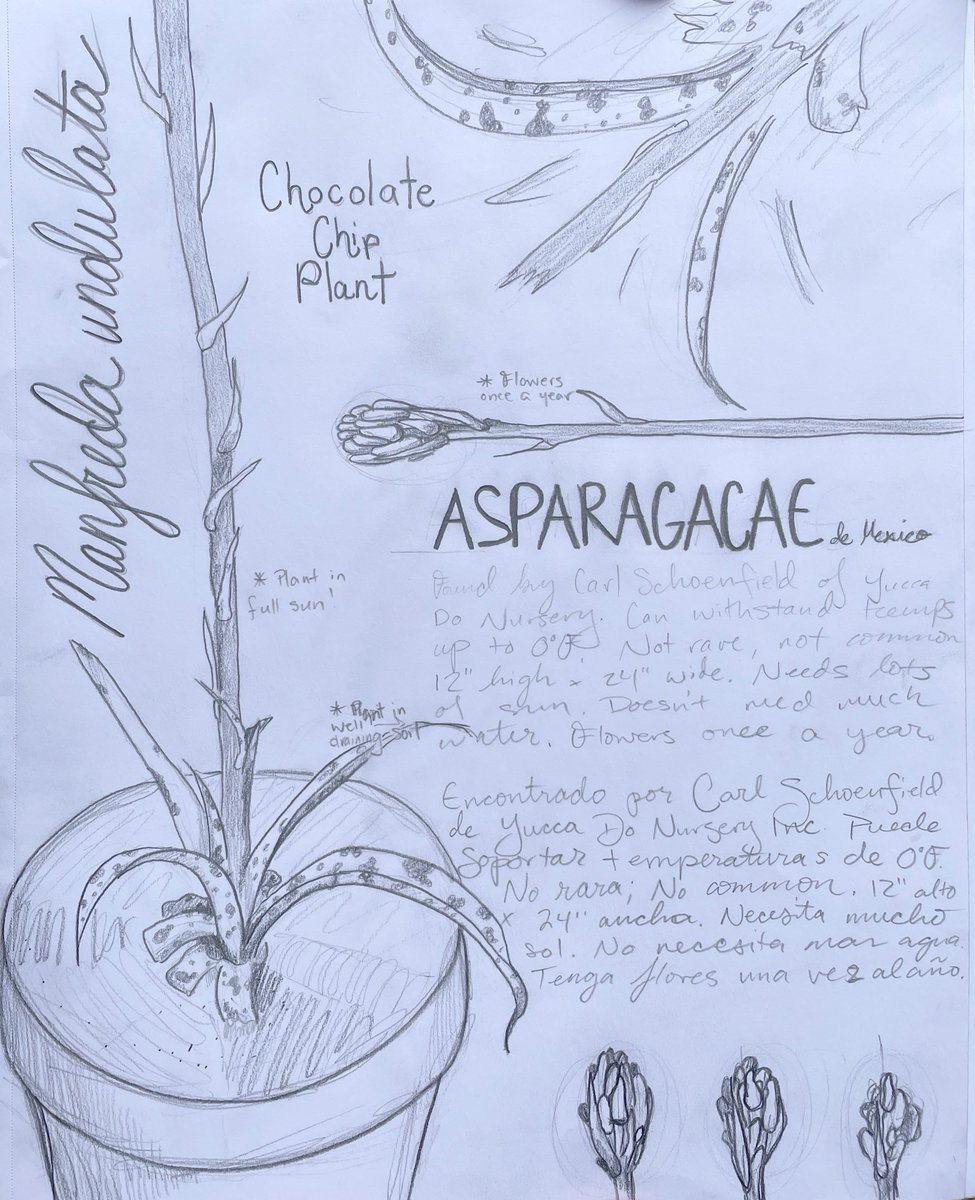 Manfreda undulata
Chocolate
Chip
Plant
* Flowers
once a year
ASPARAGACAE de Mexico
* Plant in
full sun!
Found by Carl Schoenfield of Yucca
Do Nursery. Can withstand temps
up to 0°F. Not rare, not common
12" high x 24" wide. Needs lots
of sun. Doesn't need much
water. Flowers once a year.
* Plant in
well
draining soil
Encontrado por Carl Schoenfield
de Yucca Do Nursery Inc. Puede
Soportar temperaturas de 0°F.
No rara; No common. 12" alto
x 24" ancha. Necesita mucho
sol. No necesita mar agua.
Tenga flores una vez al año.